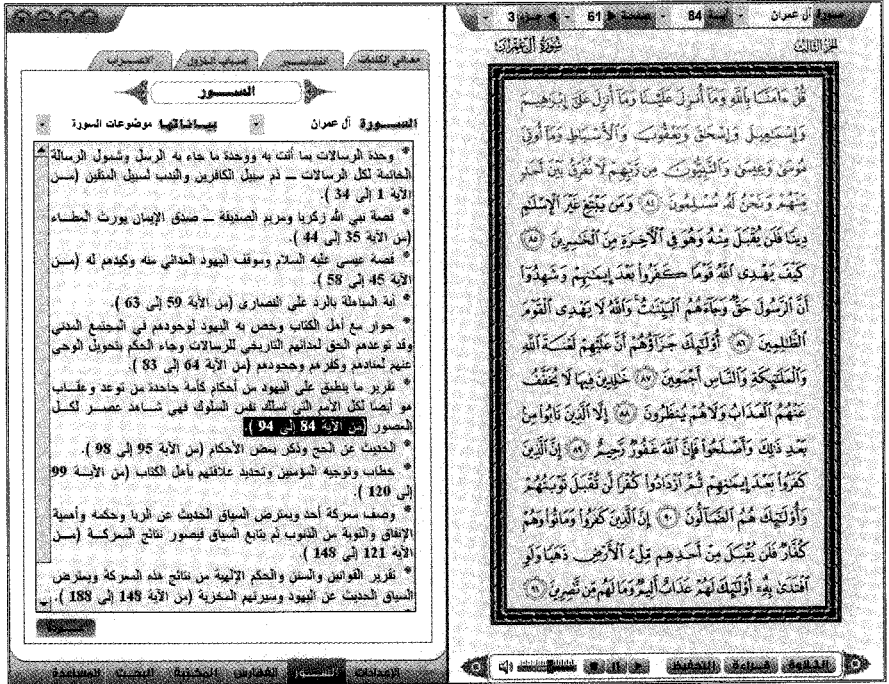 سورة آل عمران - آية 84 - صفحة 61 - جزء 3
الجزء الثالث
سورة آل عمران
قُلْ ءَامَنَّا بِٱللَّهِ وَمَآ أُنزِلَ عَلَيْنَا وَمَآ أُنزِلَ عَلَىٰٓ إِبْرَٰهِيمَ
وَإِسْمَٰعِيلَ وَإِسْحَٰقَ وَيَعْقُوبَ وَٱلْأَسْبَاطِ وَمَآ أُوتِىَ
مُوسَىٰ وَعِيسَىٰ وَٱلنَّبِيُّونَ مِن رَّبِّهِمْ لَا نُفَرِّقُ بَيْنَ أَحَدٍ
مِّنْهُمْ وَنَحْنُ لَهُۥ مُسْلِمُونَ ٨٤ وَمَن يَبْتَغِ غَيْرَ ٱلْإِسْلَٰمِ
دِينًا فَلَن يُقْبَلَ مِنْهُ وَهُوَ فِى ٱلْأَخِرَةِ مِنَ ٱلْخَٰسِرِينَ ٨٥
كَيْفَ يَهْدِى ٱللَّهُ قَوْمًا كَفَرُوا۟ بَعْدَ إِيمَٰنِهِمْ وَشَهِدُوٓا۟
أَنَّ ٱلرَّسُولَ حَقٌّ وَجَآءَهُمُ ٱلْبَيِّنَٰتُ وَٱللَّهُ لَا يَهْدِى ٱلْقَوْمَ
ٱلظَّٰلِمِينَ ٨٦ أُو۟لَٰٓئِكَ جَزَآؤُهُمْ أَنَّ عَلَيْهِمْ لَعْنَةَ ٱللَّهِ
وَٱلْمَلَٰٓئِكَةِ وَٱلنَّاسِ أَجْمَعِينَ ٨٧ خَٰلِدِينَ فِيهَا لَا يُخَفَّفُ
عَنْهُمُ ٱلْعَذَابُ وَلَا هُمْ يُنظَرُونَ ٨٨ إِلَّا ٱلَّذِينَ تَابُوا۟ مِنۢ
بَعْدِ ذَٰلِكَ وَأَصْلَحُوا۟ فَإِنَّ ٱللَّهَ غَفُورٌ رَّحِيمٌ ٨٩ إِنَّ ٱلَّذِينَ
كَفَرُوا۟ بَعْدَ إِيمَٰنِهِمْ ثُمَّ ٱزْدَادُوا۟ كُفْرًا لَّن تُقْبَلَ تَوْبَتُهُمْ
وَأُو۟لَٰٓئِكَ هُمُ ٱلضَّآلُّونَ ٩٠ إِنَّ ٱلَّذِينَ كَفَرُوا۟ وَمَاتُوا۟ وَهُمْ
كُفَّارٌ فَلَن يُقْبَلَ مِنْ أَحَدِهِم مِّلْءُ ٱلْأَرْضِ ذَهَبًا وَلَوِ
ٱفْتَدَىٰ بِهِۦٓ أُو۟لَٰٓئِكَ لَهُمْ عَذَابٌ أَلِيمٌ وَمَا لَهُم مِّن نَّٰصِرِينَ ٩١
التلاوة قراءة التحفيظ
معاني الكلمات التفاسير أسباب النزول الإعراب
الســور
الســورة آل عمران بيـانـاتهـا موضوعات السورة
* وحدة الرسالات بما أتت به ووحدة ما جاء به الرسل وشمول الرسالة
الخاتمة لكل الرسالات ــ ذم سبيل الكافرين والندب لسبيل المتقين (مــن
الآية 1 إلى 34 ).
* قصة نبي الله زكريا ومريم الصديقة ــ صدق الإيمان يورث العطــاء
(من الآية 35 إلى 44 ).
* قصة عيسى عليه السلام وموقف اليهود العدائي منه وكيدهم له (مــن
الآية 45 إلى 58 ).
* آية المباهلة بالرد على النصارى (من الآية 59 إلى 63 ).
* حوار مع أهل الكتاب وخص به اليهود لوجودهم في المجتمع المدني
وقد توعدهم الحق لعدائهم التاريخي للرسالات وجاء الحكم بتحويل الوحي
عنهم لعنادهم وكفرهم وجحودهم (من الآية 64 إلى 83 ).
* تقرير ما ينطبق على اليهود من أحكام كأمة جاحدة من توعد وعقــاب
هو أيضا لكل الأمم التي تسلك نفس السلوك فهي شــاهد عصــر لكــل
العصور (من الآية 84 إلى 94 ).
* الحديث عن الحج وذكر بعض الأحكام (من الآية 95 إلى 98 ).
* خطاب وتوجيه المؤمنين وتحديد علاقتهم بأهل الكتاب (من الآيــة 99
إلى 120 ).
* وصف معركة أحد ويعترض السياق الحديث عن الربا وحكمه وأهمية
الإنفاق والتوبة من الذنوب ثم يتابع السياق فيصور نتائج المعركــة (مــن
الآية 121 إلى 148 ).
* تقرير القوانين والسنن والحكم الإلهية من نتائج هذه المعركة ويعترض
السياق الحديث عن اليهود وسيرتهم المخزية (من الآية 148 إلى 188 ).
الإعدادات الســور الفهارس المكتبة البحث المساعدة